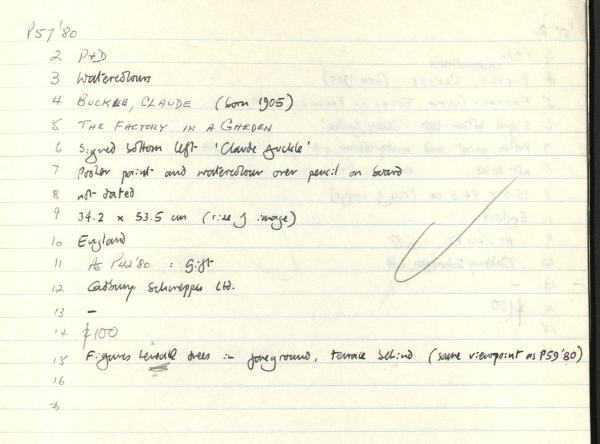 P57'80
2 P&D
3 Watercolours
4 BUCKLE, CLAUDE (born 1905)
5 THE FACTORY IN A GARDEN
6 Signed bottom left 'Claude Buckle'
7 Poster paint and watercolour over pencil on board
8 not dated
9 34.2 x 53.5 cm (size of image)
10 England
11 As P42'80 : Gift
12 Cadbury Schweppes Ltd.
13 –
14 £100
15 Figures trees in foreground, terrace behind (same viewpoint as P59'80)
16